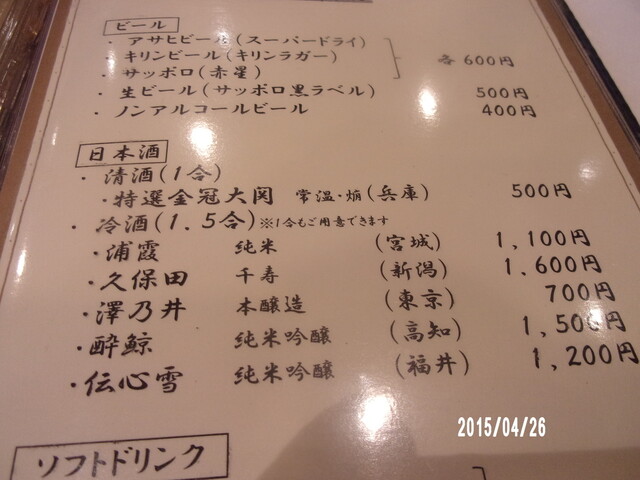 ビール
・アサヒビール(スーパードライ)
・キリンビール(キリンラガー) 各600円
・サッポロ(赤星)
・生ビール(サッポロ黒ラベル) 500円
・ノンアルコールビール 400円
日本酒
・清酒(1合)
・特選金冠大関 常温・燗(兵庫) 500円
・冷酒(1.5合)※1合もご用意できます
・浦霞 純米 (宮城) 1,100円
・久保田 千寿 (新潟) 1,600円
・澤乃井 本醸造 (東京) 700円
・酔鯨 純米吟醸 (高知) 1,500円
・伝心雪 純米吟醸 (福井) 1,200円
ソフトドリンク
2015/04/26